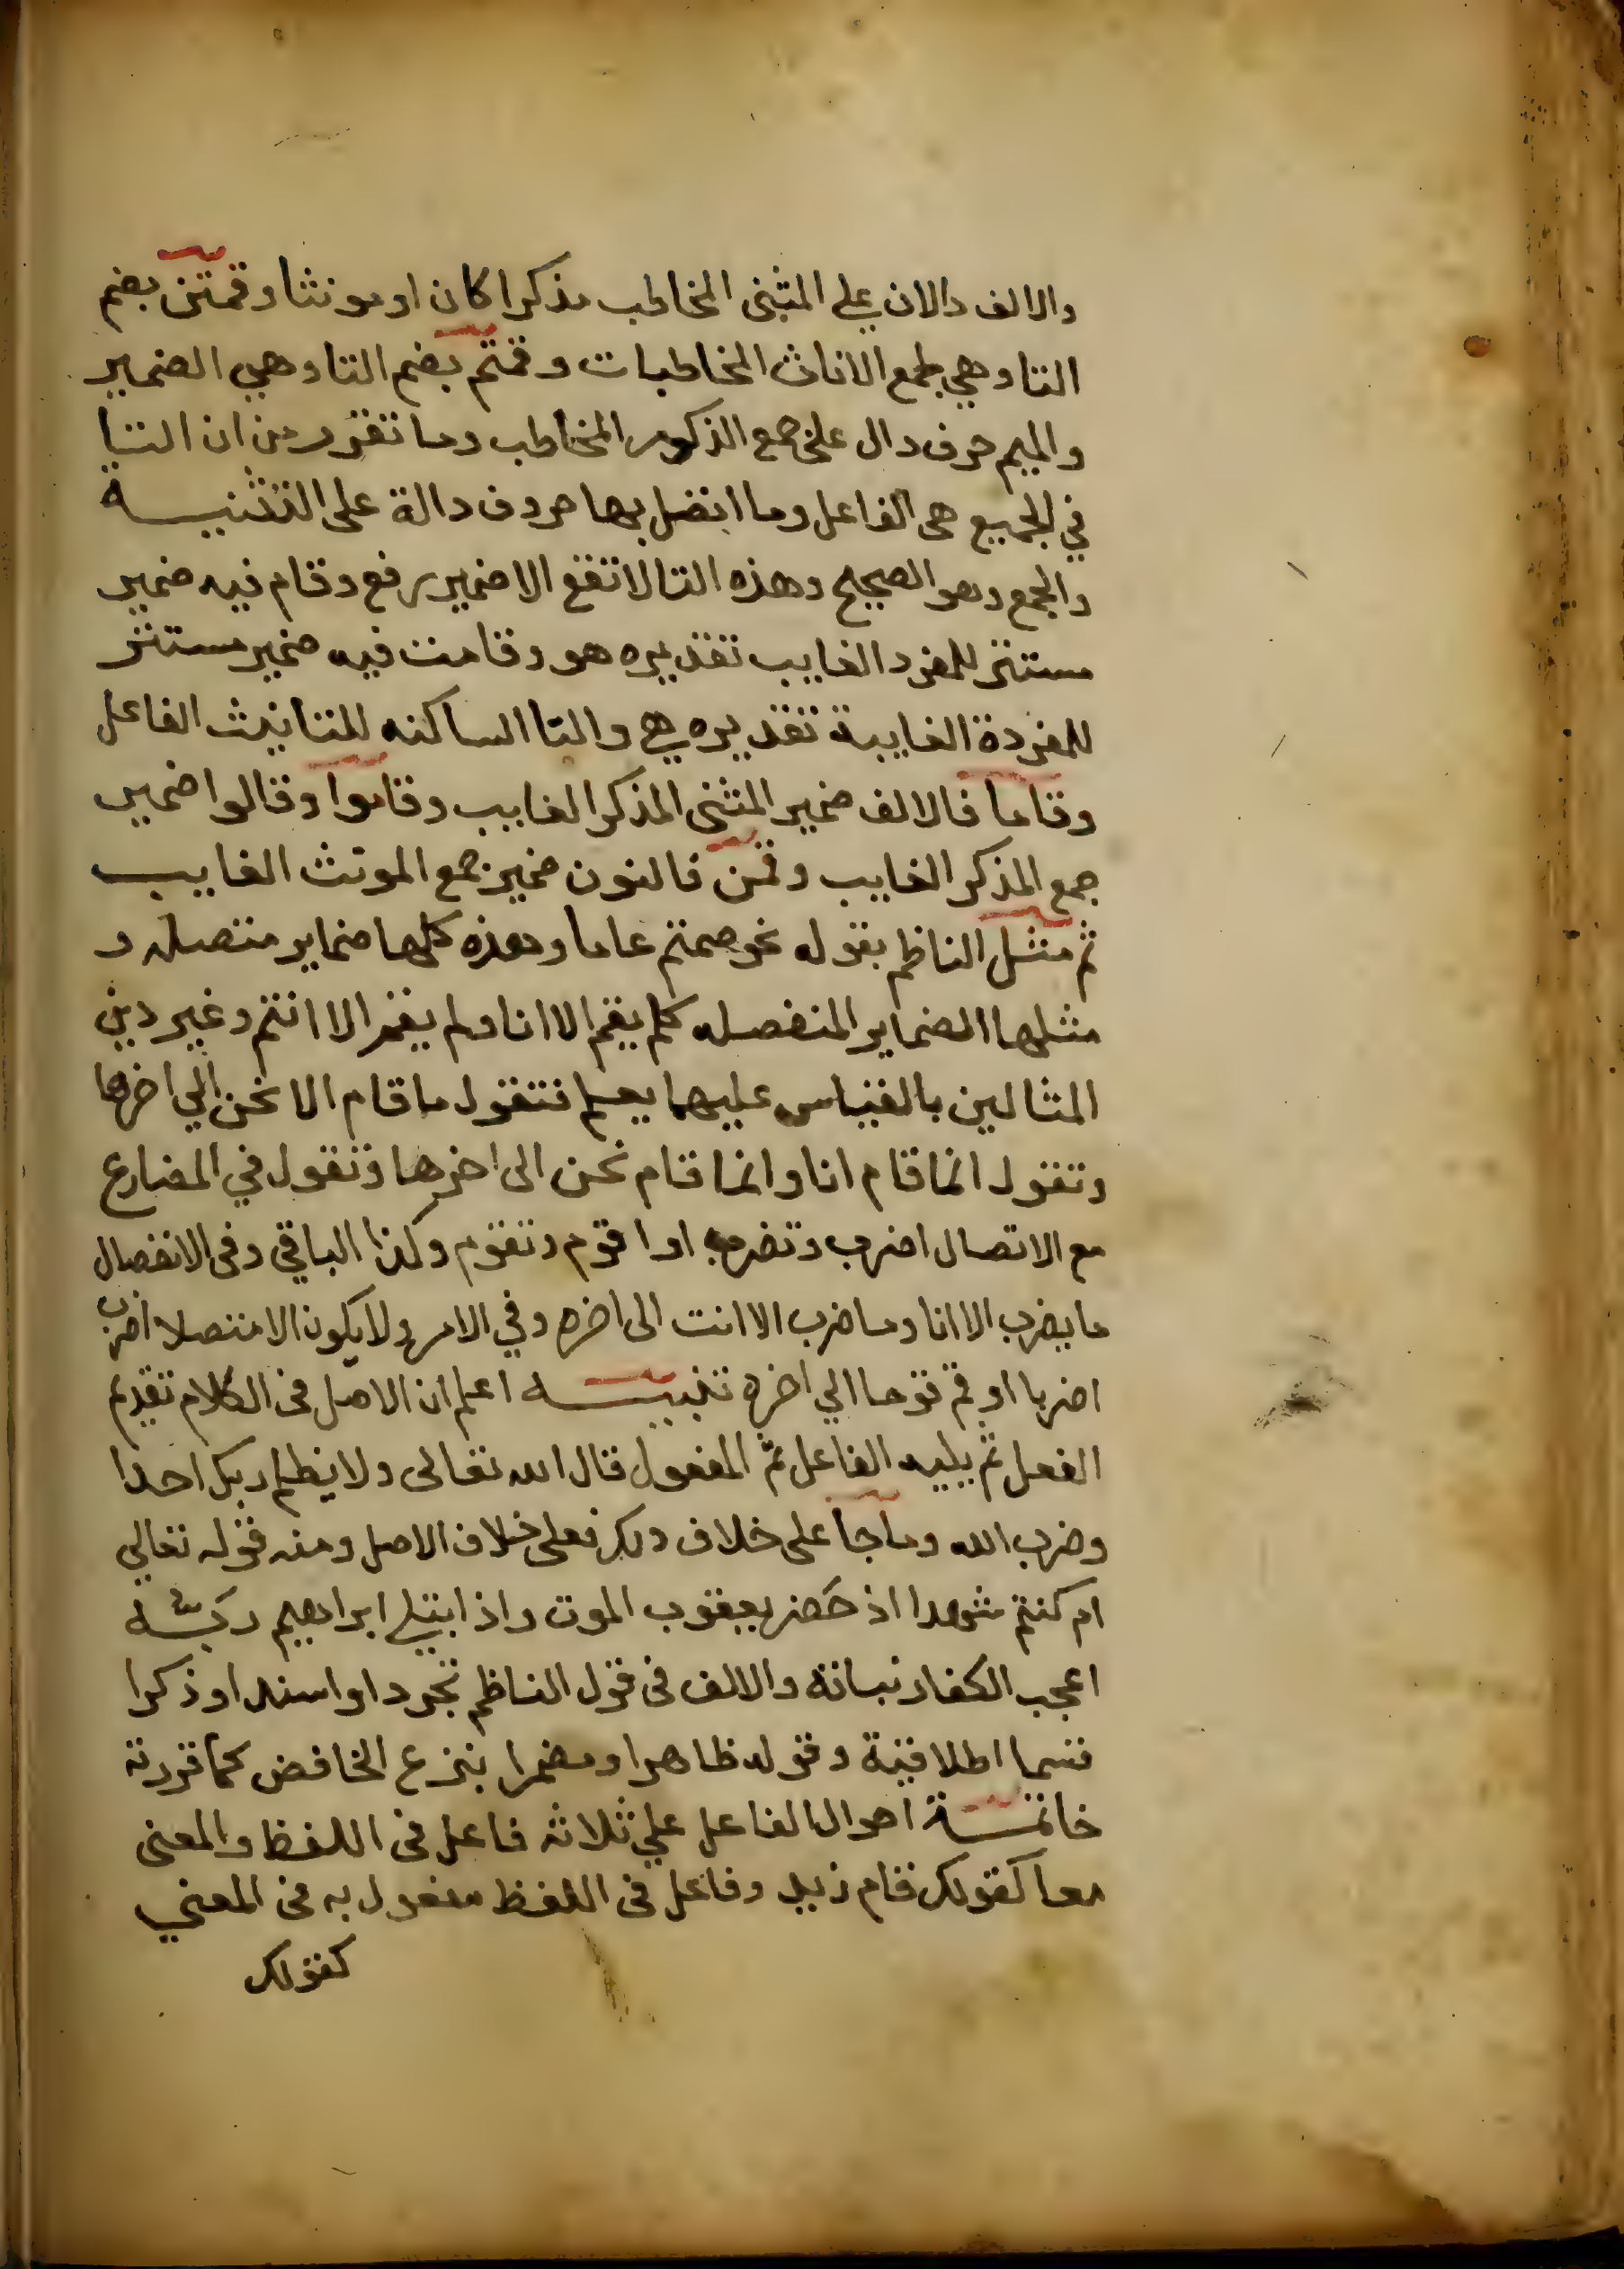 والالف دالان على المثنى المخاطب مذكرا كان او مونثا وقمتن بضم
التا وهي لجمع الاناث المخاطبات وقمتم بضم التا وهي الضمير
والميم حرف دال على جمع الذكور المخاطب وما تقرر من ان التا
في الجميع هى الفاعل وما اتصل بها حروف دالة على التثنيه
والجمع وهو الصحيح وهذه التا لا تقع الا ضمير رفع وقام فيه ضمير
مستتر للمفرد الغايب تقديره هو وقامت فيه ضمير مستتر
للمفردة الغايبة تقديره هي والتا الساكنه للتانيث الفاعل
وقاما فالالف ضمير المثنى المذكر الغايب وقاموا وقالوا ضمير
جمع المذكر الغايب وقمن فالنون ضمير جمع المونث الغايب
ثم مثل الناظم بقوله نحو صمتم عاما وهذه كلها ضماير متصله و
مثلها الضماير المنفصله كلم يقم الا انا ولم يقم الا انتم وغير ذين
المثالين بالقياس عليهما يعلم فتقول ما قام الا نحن الي اخرها
وتقول انما قام انا وانما قام نحن الى اخرها وتقول في المضارع
مع الاتصال اضرب وتضرب او اقوم وتقوم وكذا الباقي وفى الانفصال
ما يضرب الا انا وما ضرب الا انت الى اخره وفي الامر ولا يكون الا متصلا اضرب
اضربا او قم قوما الي اخره تنبيه اعلم ان الاصل فى الكلام تقديم
الفعل ثم يليه الفاعل ثم المفعول قال الله تعالى ولا يظلم ربك احدا
وضرب الله وما جا على خلاف ذلك فعلى خلاف الاصل ومنه قوله تعالي
ام كنتم شهدا اذ حضر يعقوب الموت واذ ابتلي ابراهيم ربه
اعجب الكفار نباته والالف فى قول الناظم تجردا واسندا وذكرا
قسما اطلاقية وقوله ظاهرا ومضمرا بنزع الخافض كما قررته
خاتمة احوال الفاعل علي ثلاثه فاعل فى اللفظ والمعنى
معا كقولك قام زيد وفاعل فى اللفظ مفعول به فى المعني
كقولك